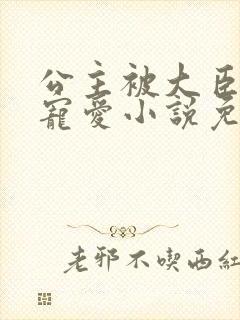 公主被大臣
寵愛小說免
老邪不喫西紅